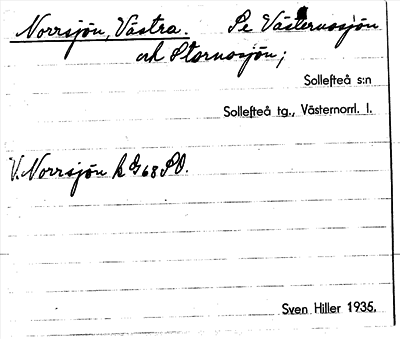 Norrsjön, Västra. Se Västernosjön
och Stornosjön;
Sollefteå s:n
Sollefteå tg., Västernorrl. l.
V. Norrsjön
Sven Hiller 1935.